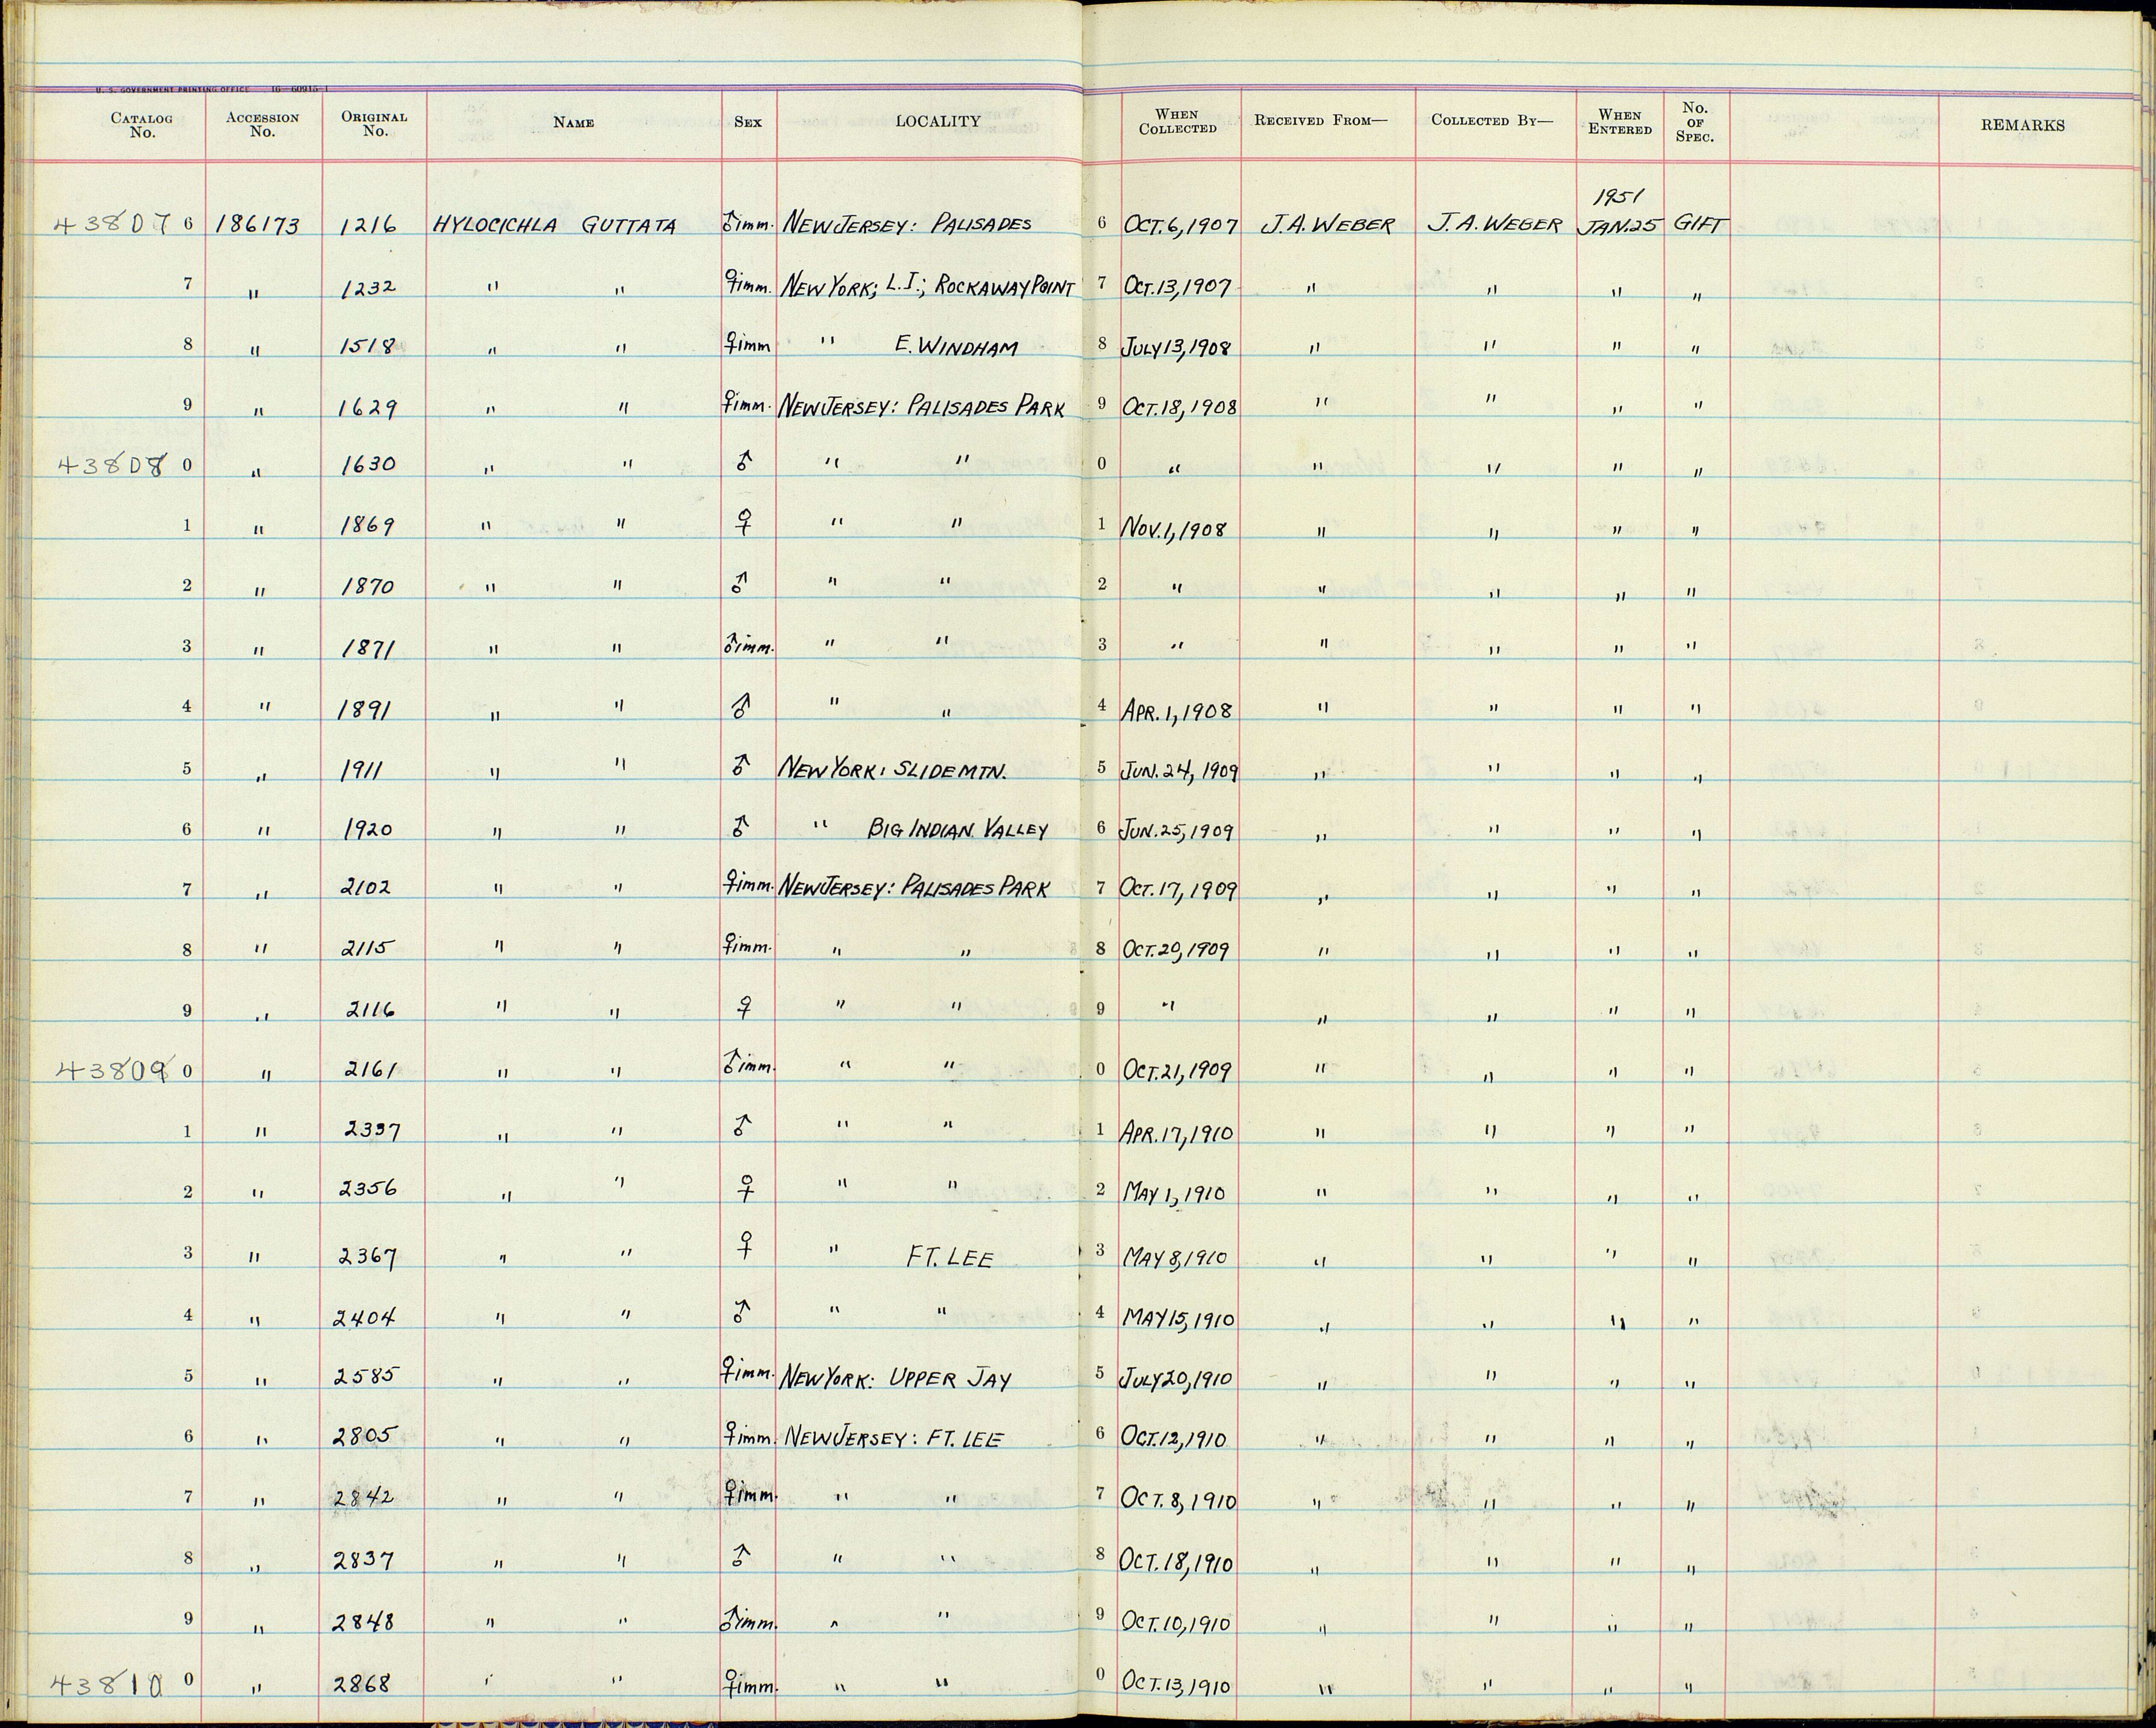 U. S. GOVERNMENT PRINTING OFFICE 16—60915-1
CATALOG No. ACCESSION No. ORIGINAL No. NAME SEX LOCALITY WHEN COLLECTED RECEIVED FROM— COLLECTED BY— WHEN ENTERED No. OF SPEC. REMARKS
1951
43807 6 186173 1216 HYLOCICHLA GUTTATA ♂imm. NEW JERSEY: PALISADES 6 OCT. 6, 1907 J.A. WEBER J.A. WEBER JAN. 25 GIFT
7 " 1232 " " ♀imm. NEW YORK; L.I.; ROCKAWAY POINT 7 OCT. 13, 1907 " " " "
8 " 1518 " " ♀imm " E. WINDHAM 8 JULY 13, 1908 " " " "
9 " 1629 " " ♀imm. NEW JERSEY: PALISADES PARK 9 OCT. 18, 1908 " " " "
43808 0 " 1630 " " ♂ " " 0 " " " " "
1 " 1869 " " ♀ " " 1 NOV. 1, 1908 " " " "
2 " 1870 " " ♂ " " 2 " " " " "
3 " 1871 " " ♂imm. " " 3 " " " " "
4 " 1891 " " ♂ " " 4 APR. 1, 1908 " " " "
5 " 1911 " " ♂ NEW YORK: SLIDE MTN. 5 JUN. 24, 1909 " " " "
6 " 1920 " " ♂ " BIG INDIAN VALLEY 6 JUN. 25, 1909 " " " "
7 " 2102 " " ♀imm. NEW JERSEY: PALISADES PARK 7 OCT. 17, 1909 " " " "
8 " 2115 " " ♀imm. " " 8 OCT. 20, 1909 " " " "
9 " 2116 " " ♀ " " 9 " " " " "
43809 0 " 2161 " " ♂imm. " " 0 OCT. 21, 1909 " " " "
1 " 2337 " " ♂ " " 1 APR. 17, 1910 " " " "
2 " 2356 " " ♀ " " 2 MAY 1, 1910 " " " "
3 " 2367 " " ♀ " FT. LEE 3 MAY 8, 1910 " " " "
4 " 2404 " " ♂ " " 4 MAY 15, 1910 " " " "
5 " 2585 " " ♀imm. NEW YORK: UPPER JAY 5 JULY 20, 1910 " " " "
6 " 2805 " " ♀imm. NEW JERSEY: FT. LEE 6 OCT. 12, 1910 " " " "
7 " 2842 " " ♀imm. " " 7 OCT. 8, 1910 " " " "
8 " 2837 " " ♂ " " 8 OCT. 18, 1910 " " " "
9 " 2848 " " ♂imm. " " 9 OCT. 10, 1910 " " " "
43810 0 " 2868 " " ♀imm. " " 0 OCT. 13, 1910 " " " "